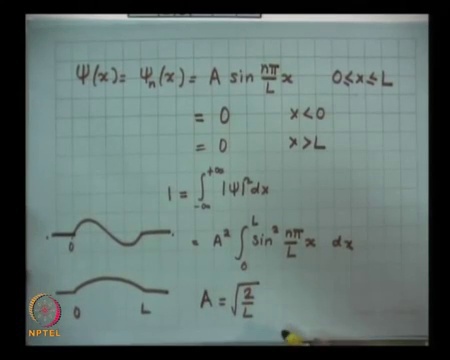 Ψ(x) = Ψn(x) = A sin nπ/L x 0≤x≤L
= 0 x<0
= 0 x>L
1 = ∫-∞+∞ |Ψ|² dx
= A² ∫0L sin² nπ/L x dx
0
A = √2/L
0 L
NPTEL